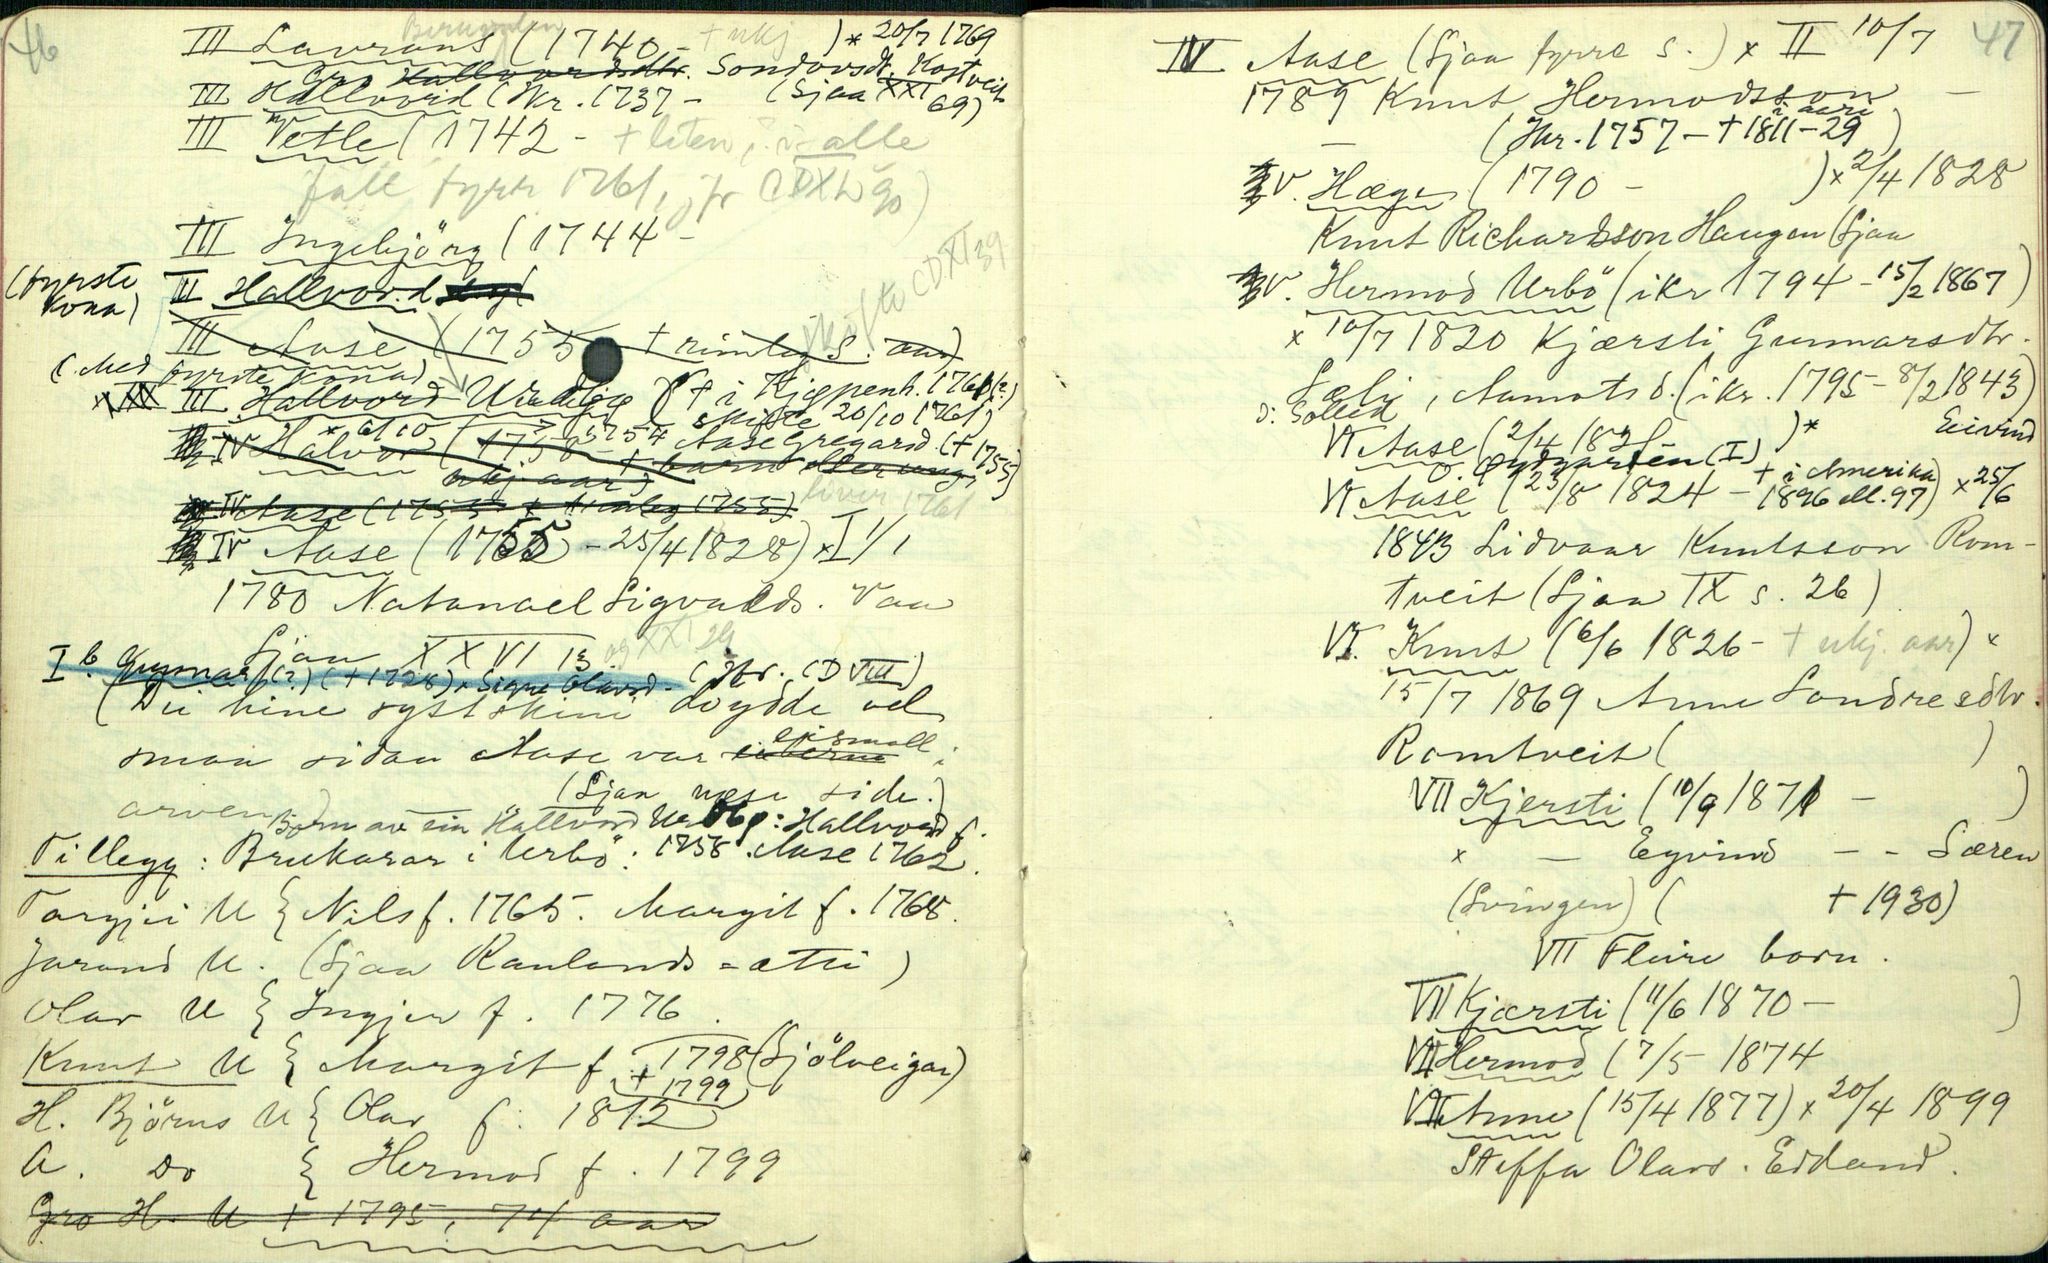 46
III Lavrans (1740 - + ukj )* 20/7 1769
Gro Hallvordsdtr. Sondovsdt. Kostveit
III Hallvord (Kr. 1737 - (Sjaa XXI 69)
III Vetle (1742 - + liten, i alle
fall fyrr 1761, jfr CDXL 90)
III Ingebjörg (1744 -
(fyrste kona) II Hallvord
skifte CDXI 39
III Aase (1755 + rimleg s. aar)
(Med fyrste kona)
III Hallvord (+ i Kjøpenh. 1761(?)
skifte 20/10 1761)
* 6/10 1754 Aase Gregarsd. (+ 1755)
IV Halvor (1758 + barn eller ung,
ukj. aar)
liver 1761
IV Aase (1755 + rimleg 1755)
IV Aase (1755 - 25/4 1828) x I 1/1
1780 Natanael Sigvalds. Vaa
Sjaa XXVI 13 og XXI 29
I b. Gunnar (?) (+ 1728) x Signe Olavsd. (Jfr. CDVIII)
(Dei hine systkini döydde vel
smaa sidan Aase var einsmall i
arven) (Sjaa næse side.)
Born av ein Hallvord Urbö: Hallvord f.
Tillegg: Brukarar i Urbö: 1758. Aase 1762.
Torgjei U { Nils f. 1765. Margit f. 1768.
Jorund U. (Sjaa Raulands-ætti)
Olav U { Ingjer f. 1776.
Knut U { Margit f. 1798 (Sjölveigar)
+ 1799
H. Björns U { Olav f. 1812
A. Do { Hermod f. 1799
Gro H. U + 1795, 74 aar
47
IV Aase (Sjaa fyrre s.) x II 10/7
1789 Knut Hermodsson -
(Kr. 1757 - + 1811-29)
V. Hæge (1790 - )x 2/4 1828
Knut Richardsson Haugen (Sjaa
V. Hermod Urbö (ikr 1794 - 15/2 1867)
x 10/7 1820 Kjærsti Gunnarsdtr.
Sæli, Aamots s. (ikr. 1795 - 8/2 1843)
VI Aase (2/4 182 )* Eivind
(I)
VI Aase (23/8 1824 - + i Amerika 1896 ell. 97) x 25/6
1843 Lidvaar Knutsson Rom-
tveit (Sjaa IX s. 26)
VI. Knut (6/6 1826 - + ukj. aar) x
15/7 1869 Anne Sondresdtr.
Romtveit ( )
VII Kjersti (10/9 1871 - )
x — Eyvind - - Særen
(Svingen) ( + 1930)
VII Fleire born.
VII Kjærsti (11/6 1870 - )
VII Hermod (7/5 1874
VII Anne (15/4 1877) x 20/4 1899
Steffa Olavs. Edland.